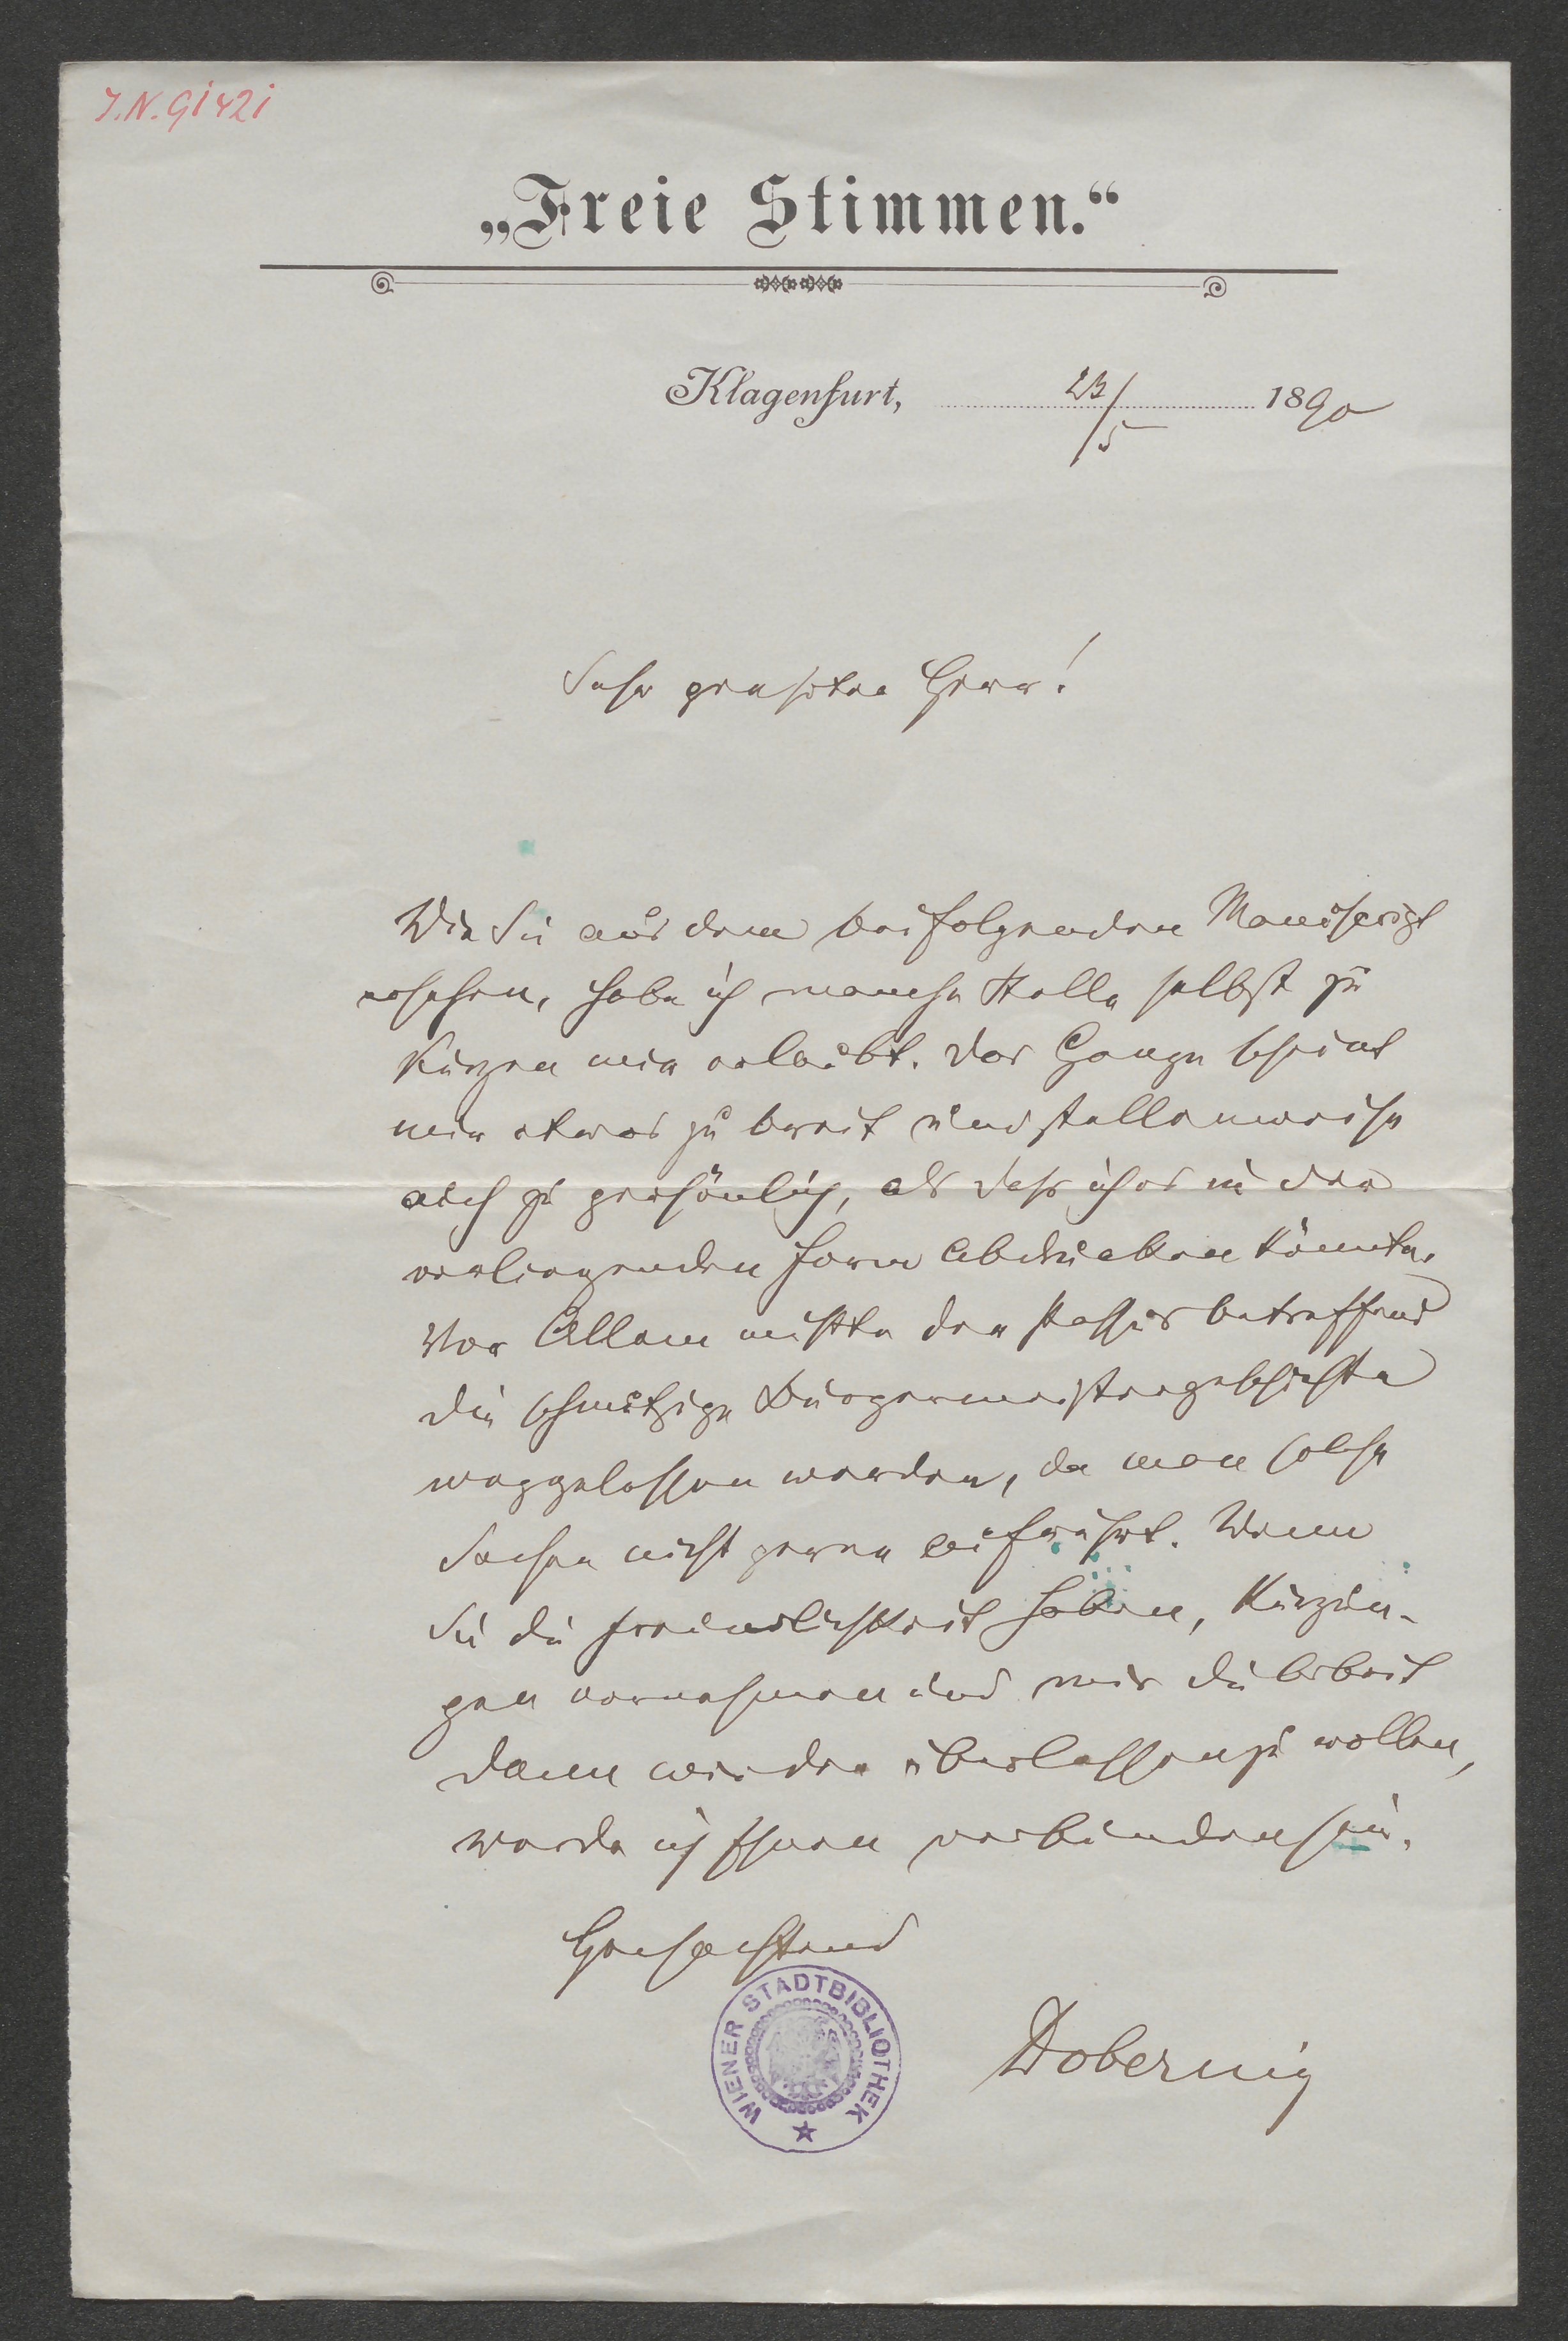 I.N. 91421
„Freie Stimmen.“
Klagenfurt, 23/5 1890
Sehr geehrter Herr!
Wie Sie aus dem beifolgenden Manuscript
ersehen, habe ich manche Stelle selbst zu
kürzen mir erlaubt. Das Ganze scheint
mir etwas zu breit und stellenweise
auch zu persönlich, als dass ich es in der
vorliegenden Form abdrucken könnte.
Vor Allem müsste der Passus betreffend
die schmutzige Bürgermeistergeschichte
weggelassen werden, da man solche
Sachen nicht gerne aufrührt. Wenn
Sie die Freundlichkeit haben, Kürzun-
gen vornehmen und mir die Arbeit
dann wieder überlassen zu wollen,
werde ich Ihnen verbunden sein.
Hochachtend
WIENER STADTBIBLIOTHEK
Dobernig